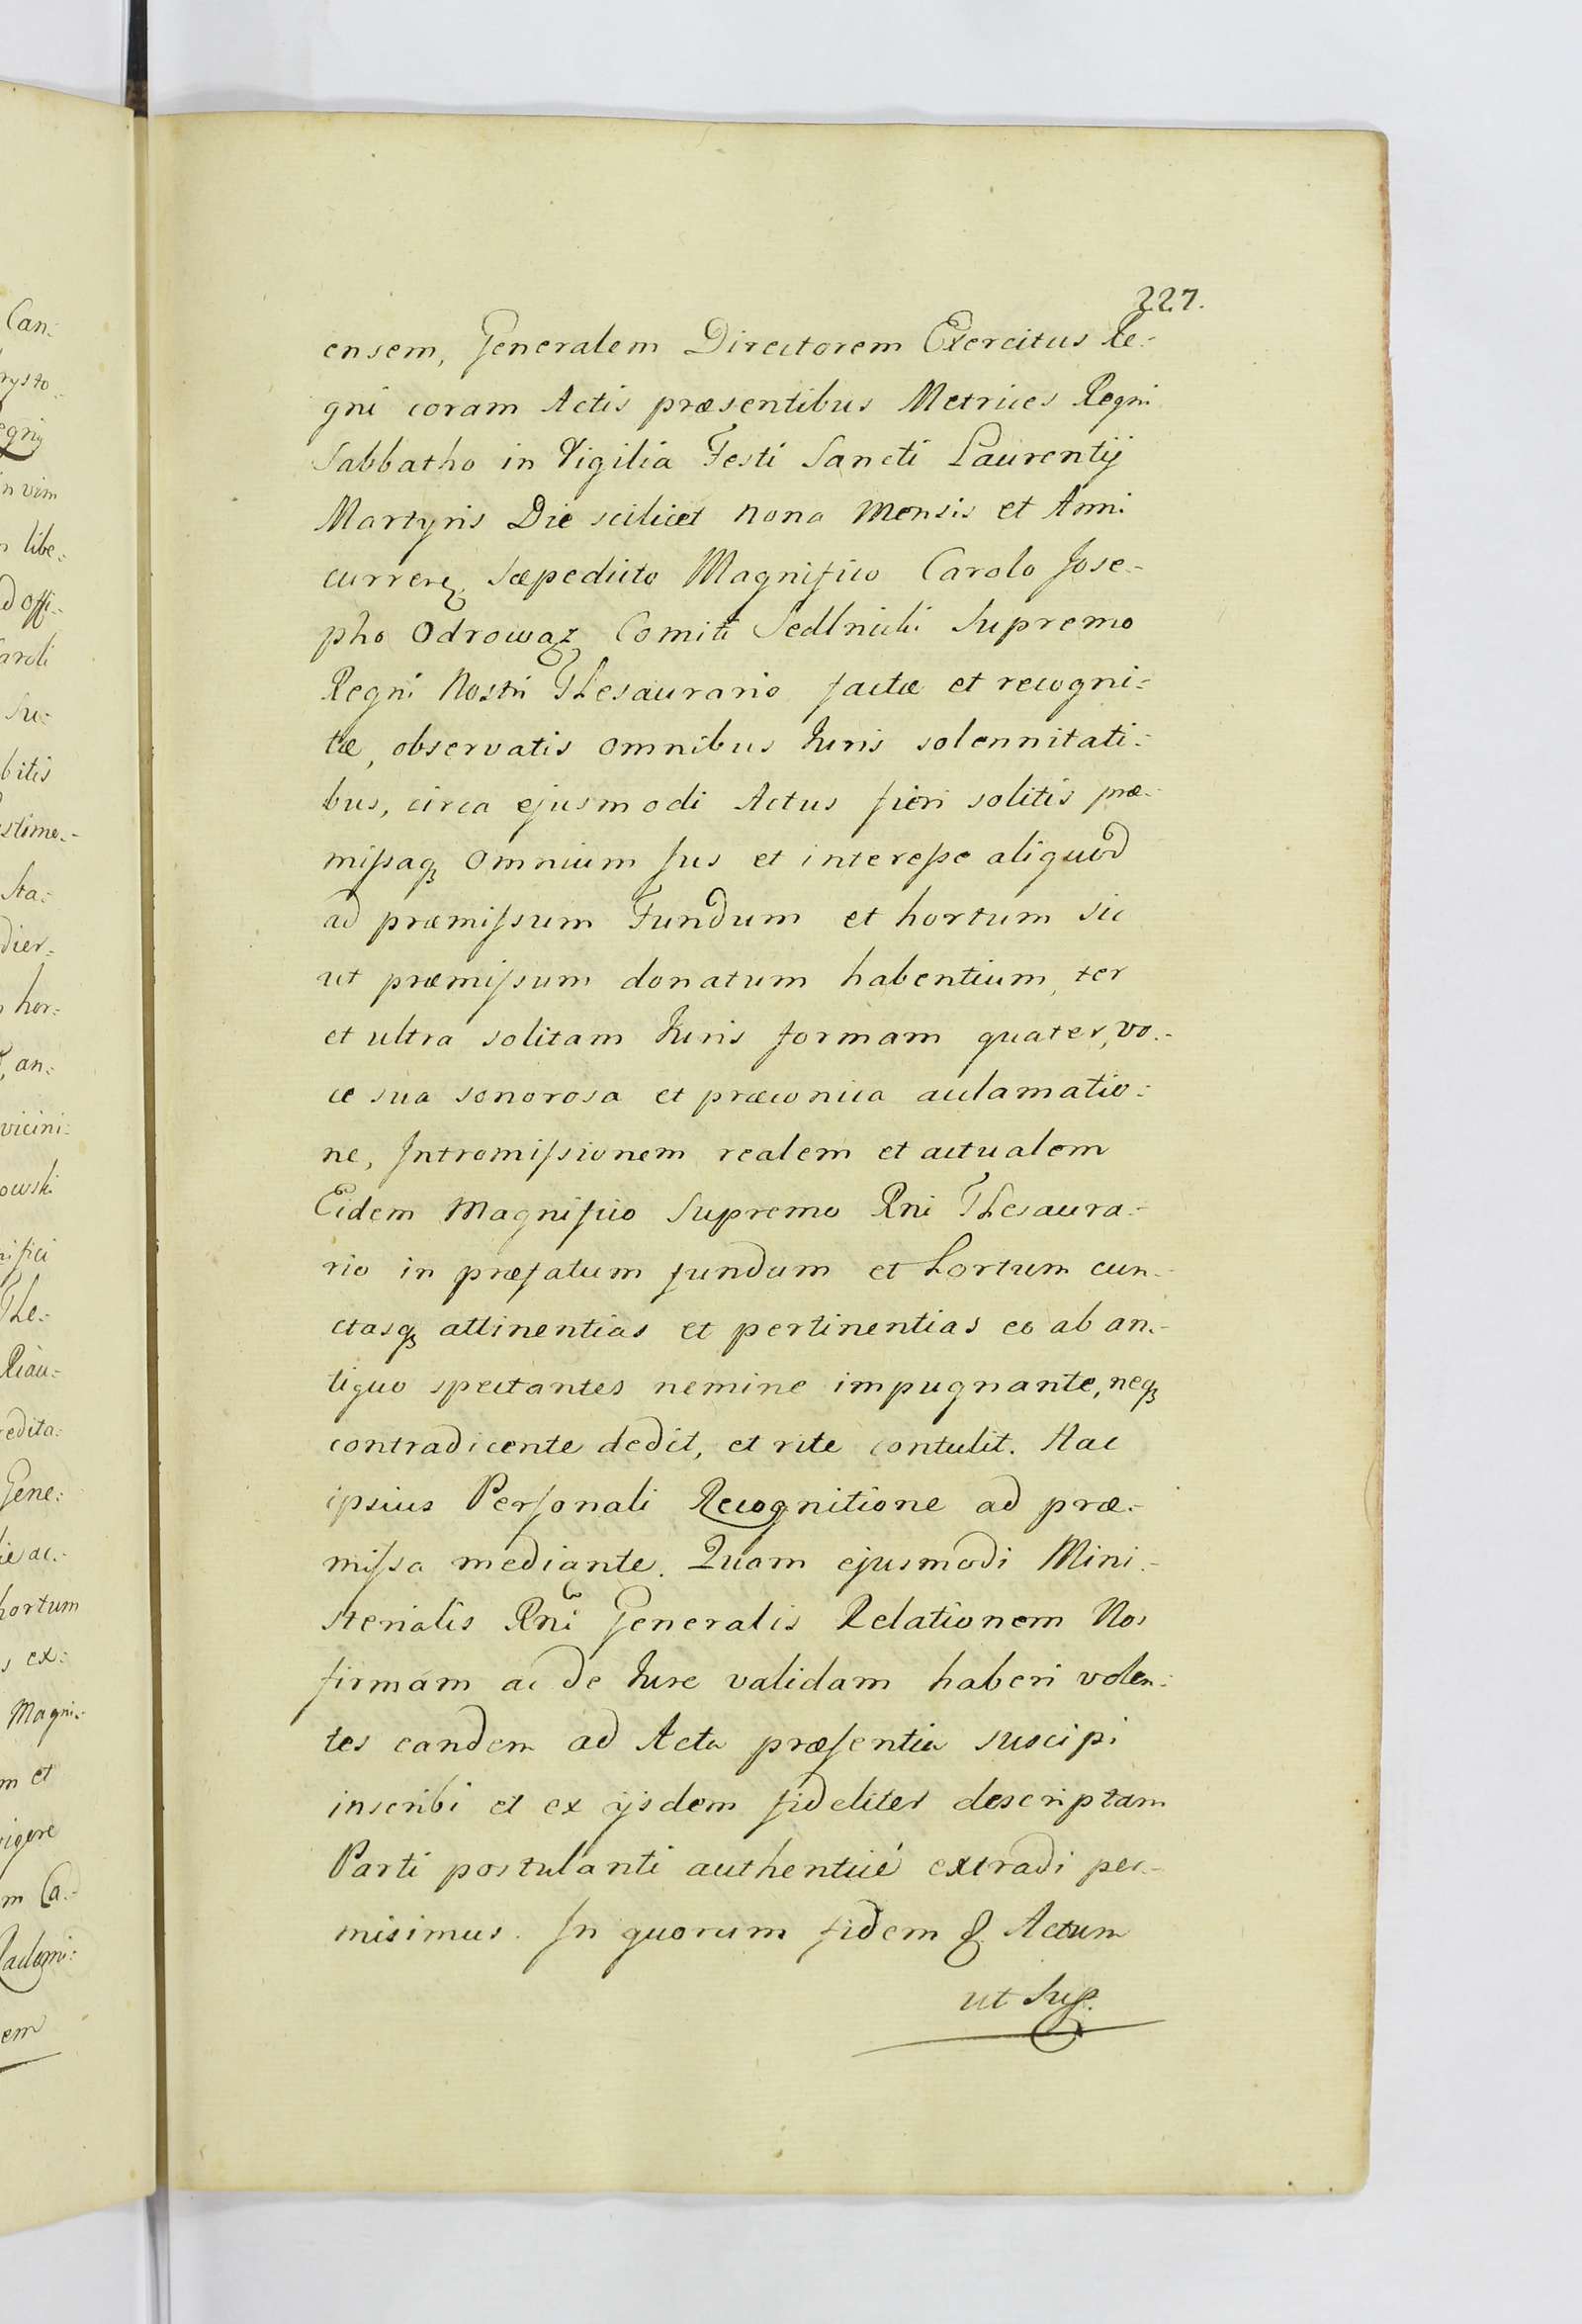 227.
ensem, Generalem Directorem Exercitus Re:
gni coram Actis præsentibus Metrices Regni
Sabbatho in Vigilia Festi Sancti Laurentij
Martyris Die scilicet nona Mensis et Anni
curren. sæpedicto Magnifico Carolo Jose:
pho Odrowąz Comiti Sedlnicki Supremo
Regni Nostri Thesaurario factæ et recogni:
tæ, observatis omnibus Juris solennitati:
bus, circa ejusmodi Actus fieri solitis præ:
missaq omnium Jus et interesse aliquod
ad præmissum Fundum et hortum sic
ut præmissum donatum habentium, ter
et ultra solitam Juris formam quater, vo:
ce sua sonorosa et præconica acclamatio:
ne, Intromissionem realem et actualem
Eidem Magnifico Supremo Rni Thesaura:
rio in præfatum fundum et hortum cun:
ctasq attinentias et pertinentias eo ab an:
tiquo spectantes nemine impugnante, neq
contradicente dedit, et rite contulit. Hac
ipsius Personali Recognitione ad præ:
missa mediante. Quam ejusmodi Mini:
sterialis Rni Generalis Relationem Nos
firmam ac de Jure validam haberi volen:
tes eandem ad Acta præsentia suscipi
inscribi et ex ijsdem fideliter descriptam
Parti postulanti authenticé extradi per:
misimus. In quorum fidem & Actum
ut Sup.
Can:
rysto:
egni
in vim
libe:
d offi:
aroli
Su:
bitis
stimo:
Sta:
dier:
hor:
an:
vicini:
owski
nifici
The:
edita:
Gene:
hortum
ex:
Magni:
m et
m Ca:
em